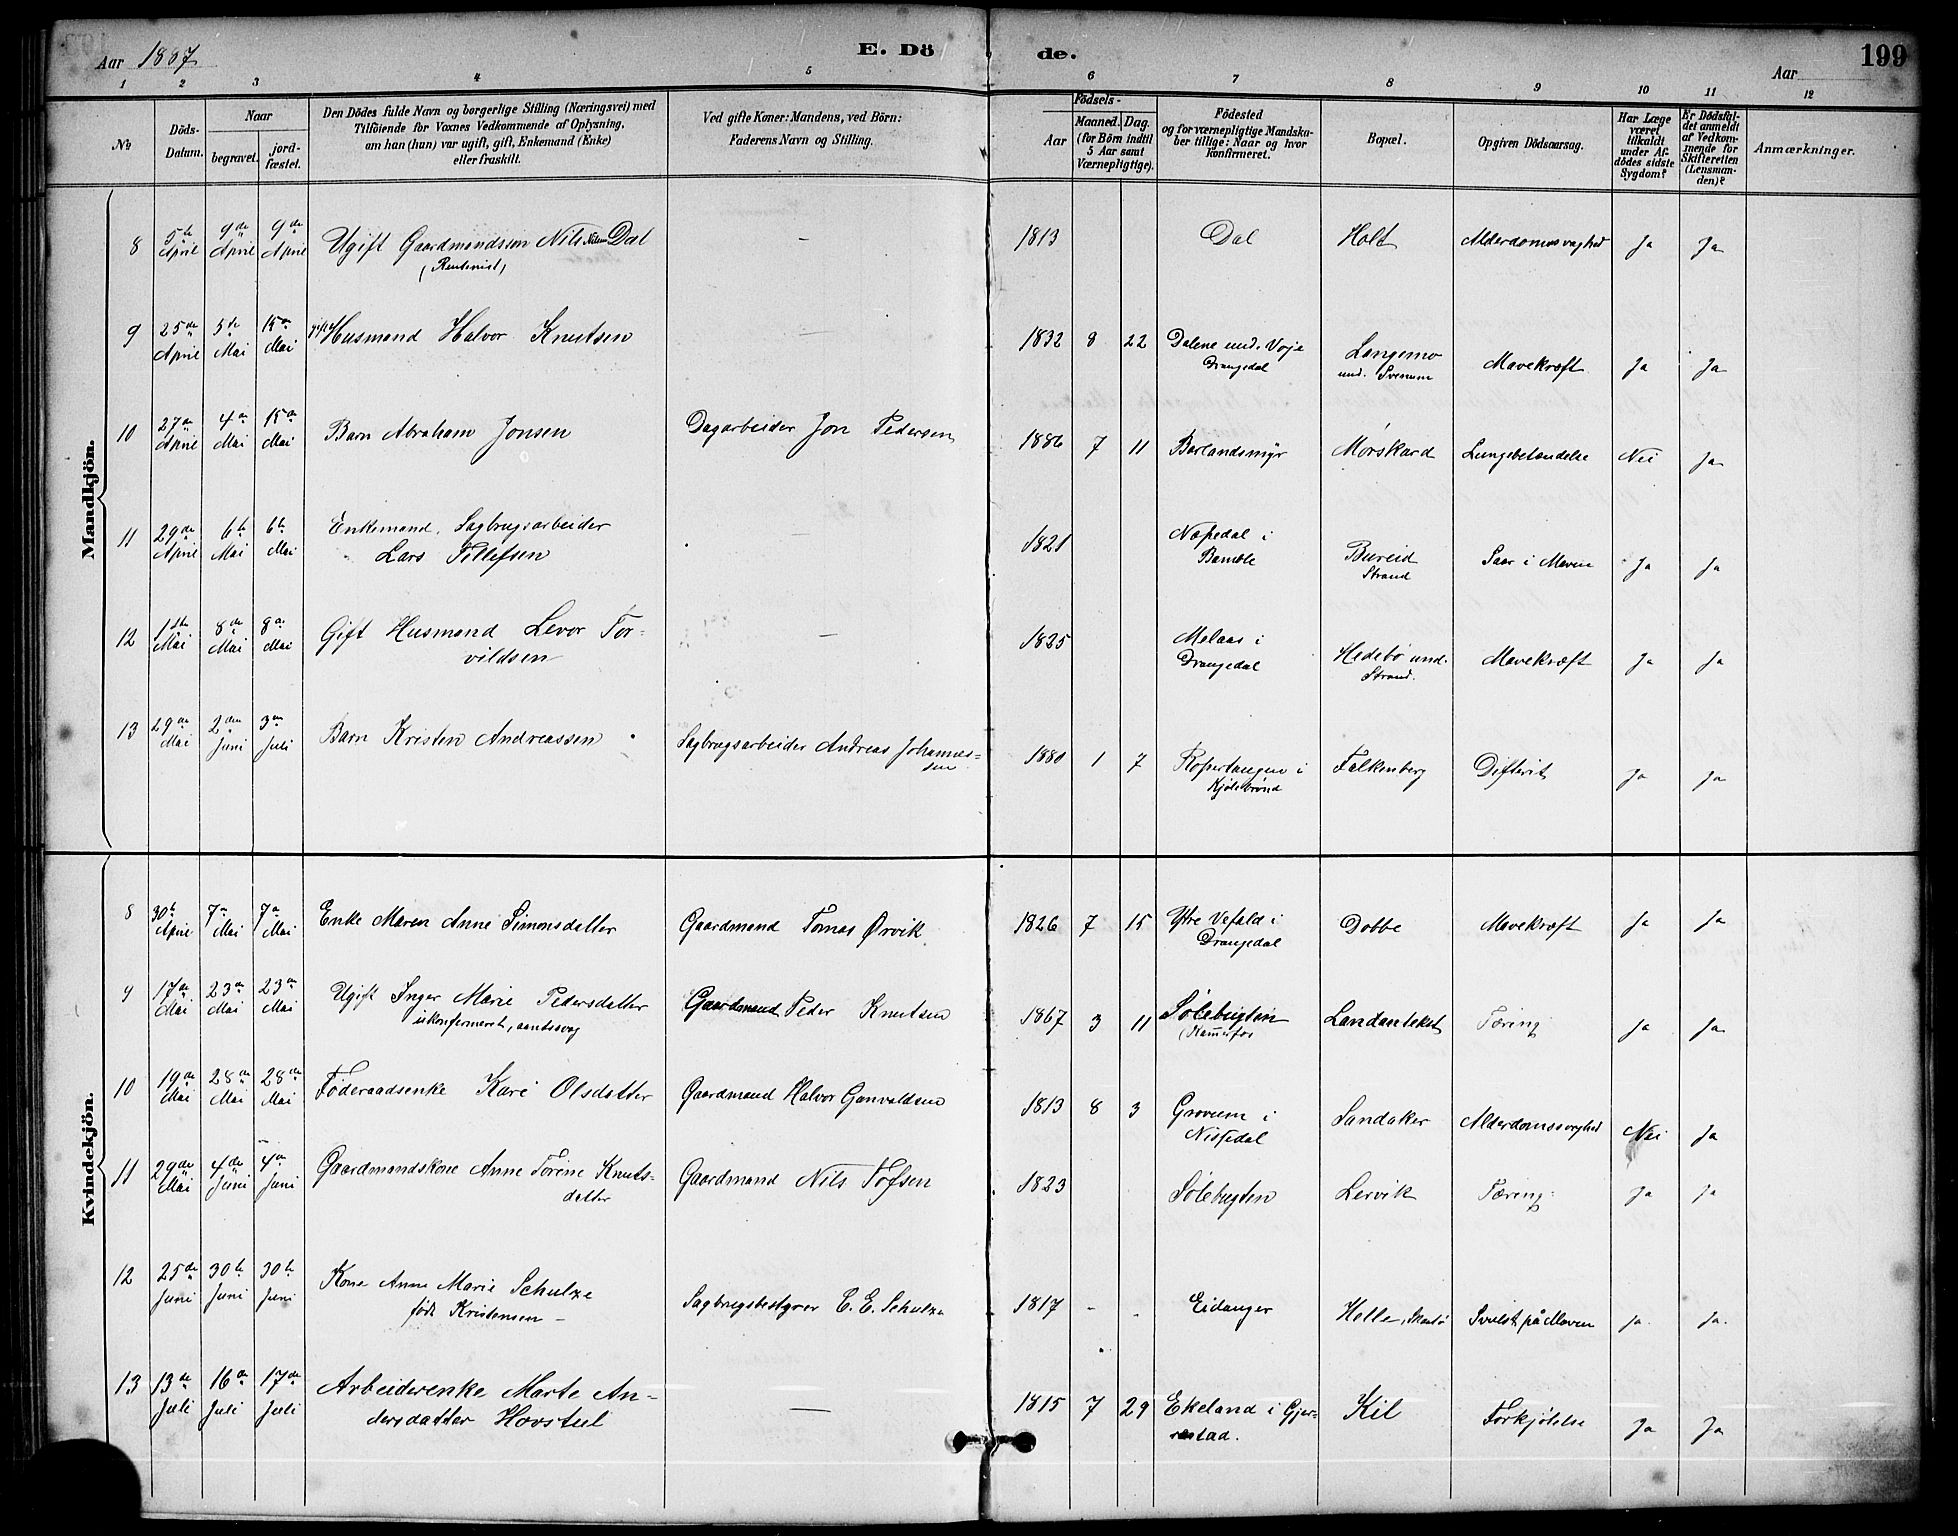 Aar 1887
E. Dö
de.
199
Aar
1 2 3 4 5 6 7 8 9 10 11 12
No
Döds-
Datum.
Naar
begravet.
jord-
fæstet.
Den Dödes fulde Navn og borgerlige Stilling (Næringsvei) med
Tilföiende for Voxnes Vedkommende af Oplysning,
om han (hun) var ugift, gift, Enkemand (Enke)
eller fraskilt.
Ved gifte Koner: Mandens, ved Börn:
Faderens Navn og Stilling.
Födsels-
Aar
Maaned. Dag.
(for Börn indtil
5 Aar samt
Værnepligtige).
Födested
og for værnepligtige Mandska-
ber tillige: Naar og hvor
konfirmeret.
Bopæl.
Opgiven Dödsaarsag.
Har Læge
været
tilkaldt
under Af-
dödes sidste
Sygdom?
Er Dödsfal-
det anmeldt
af Vedkom-
mende for
Skifteretten
(Lensman-
den)?
Anmærkninger.
Mandkjön.
8 5te April 9de April 9de April Ugift Gaardmandssøn Nils Nilsen Dal – 1813 Dal Holt Alderdomssvaghed Ja Ja
(Rentenist)
9 25de April 5te Mai 15de Mai gift Husmand Halvor Knutsen – 1832 8 22 Dalene und. Voje Langemo Mavekræft Ja Ja
Drangedal und. Svenum
10 27de April 4de Mai 15de Mai Barn Abraham Jonsen Dagarbeider Jon Pedersen 1886 7 11 Barlandsmyr Mørskard Lungebetændelse Nei Ja
11 29de April 6te Mai 6te Mai Enkemand, Sagbrugsarbeider 1821 Næfsedal i Bureid Saar i Maven Ja Ja
Lars Tellefsen Bamble Strand
12 1ste Mai 8de Mai 8de Mai Gift Husmand Levor Tor- – 1825 Melaas i Hedebø und. Mavekræft Ja Ja
vildsen Drangedal Strand.
13 29de Mai 2den Juni 3de Juli Barn Kristen Andreassen Sagbrugsarbeider Andreas Johannes- 1880 1 7 Kopertangen i Falkenberg Difterit Ja Ja
sen Kjølebrønd
Kvindekjön.
8 30te April 7de Mai 7de Mai Enke Maren Anne Simonsdatter Gaardmand Tomas Ørvik 1826 7 15 Ytre Vefald i Dobbe Mavekræft Ja Ja
Drangedal
9 17de Mai 23de Mai 23de Mai Ugift Inger Marie Pedersdatter Gaardmand Peder Knutsen 1867 3 11 Sølebugten Landanteket Tæring Ja Ja
ukonfirmeret, aandssvag (Kammerfos
10 19de Mai 28de Mai 28de Mai Føderaadsenke Kari Olsdatter Gaardmand Halvor Gunvaldsen 1813 8 3 Grovum i Sandaker Alderdomssvaghed Nei Ja
Nissedal
11 29de Mai 4de Juni 4de Juni Gaardmandskone Anne Torine Knuts- Gaardmand Nils Tofsen 1823 Sølebugten Lervik Tæring Ja Ja
datter
12 25de Juni 30te Juni 30te Juni Kone Anne Marie Schulze Sagbrugsbestyrer C. E. Schulze 1817 - - Eidanger Helle, Skaatø Svulst på Maven Ja Ja
født Kristensen –
13 13de Juli 16de Juli 17de Juli Arbeiderenke Marte An- – 1815 7 29 Ekeland i Gjer- Kil Forkjølelse Ja Ja
dersdatter Hovstul restad.